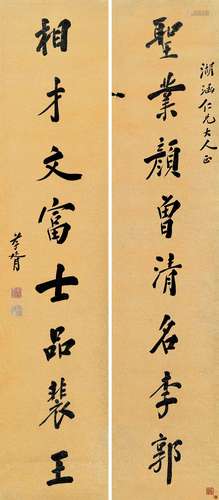 湖涵仁兄大人正
聖業顏曾清名李郭
相才文富士品裴王